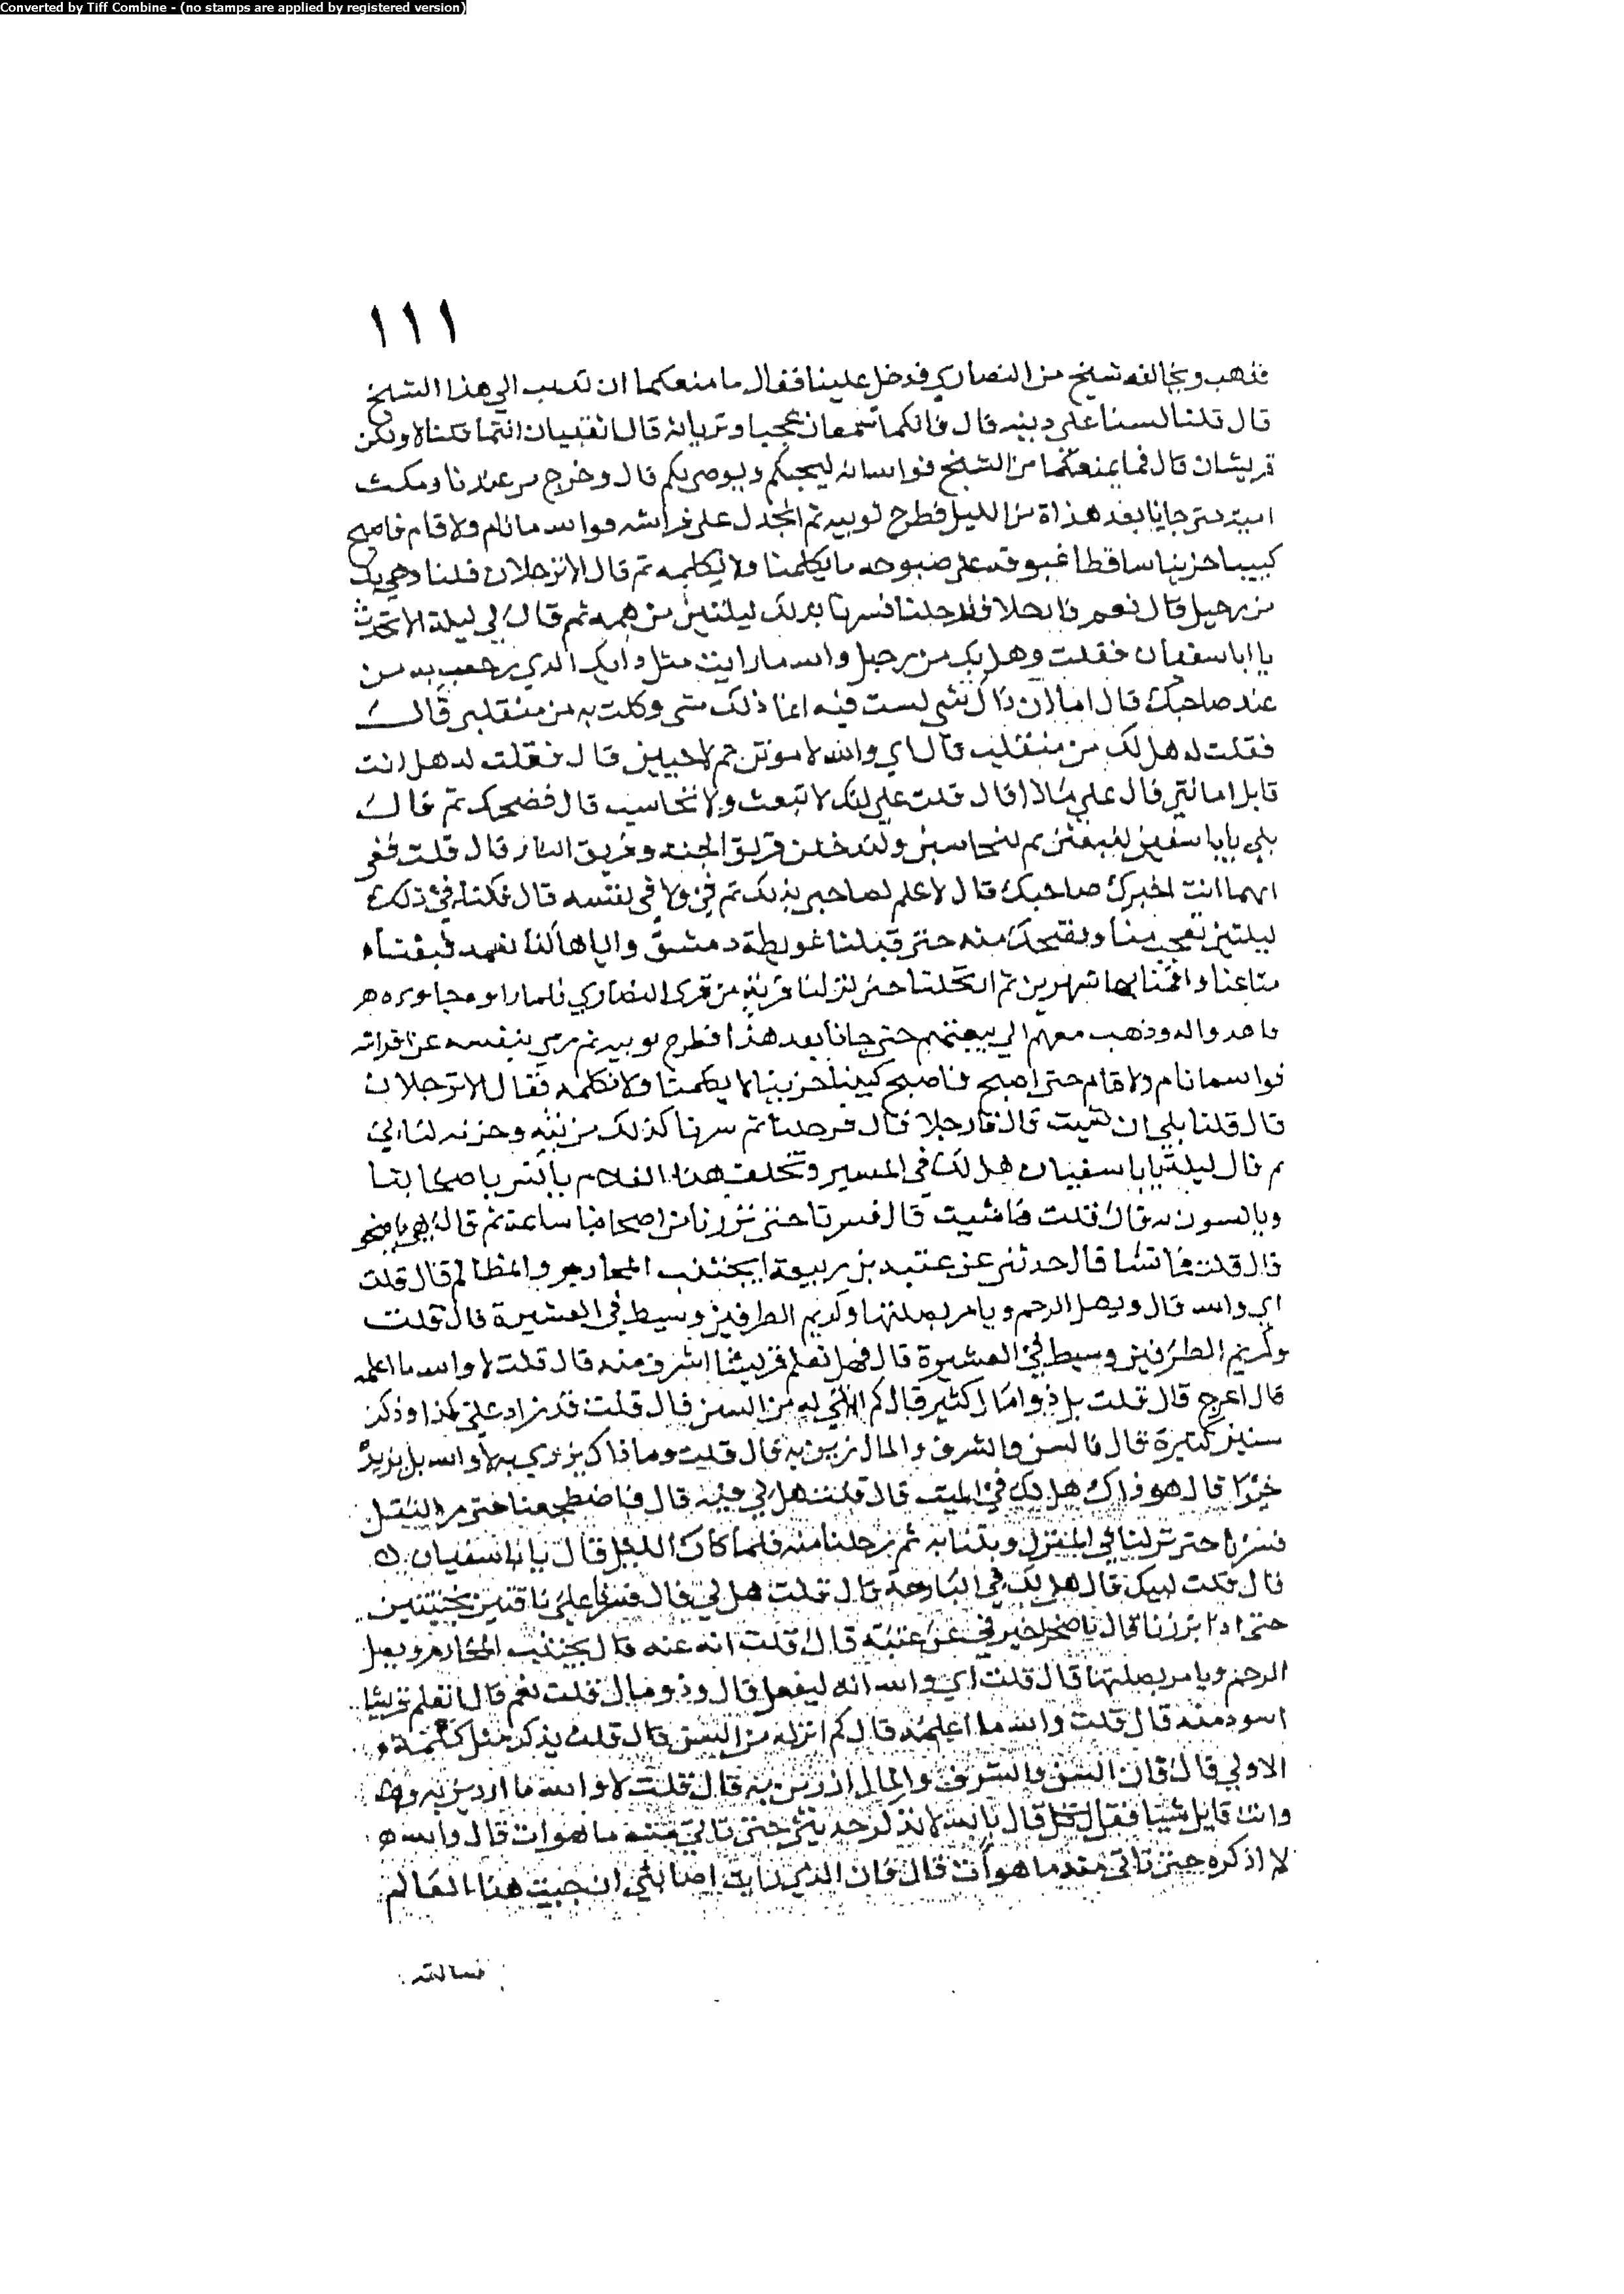 Converted by Tiff Combine - (no stamps are applied by registered version)
١١١
فذهب ويخالفه شيخ من النصارى فدخل علينا فقال ما منعكما ان تذهب الي هذا الشيخ
قال قلنا لسنا علي دينه قال فانكما تسمعان عجبا وتريانه قال اثقفيان انتما قلنا لا ولكن
قرشيان قال فما يمنعكما من الشيخ فوالله انه ليحبكم ويوصي بكم قال وخرج من عندنا ومكث
امية حتى جانا بعد هذاة من الليل فطرح ثوبيه ثم انجدل على فراشه فوالله ما نام ولا قام فاصبح
كييبا حزينا ساقطا غبوقه على صبوحه ما يكلمنا ولا نكلمه ثم قال الا ترحلان قلنا وهل بك
من رحيل قال نعم فارحلا فرحلنا فسرنا بذلك ليلتين من همه ثم قال لي ليلة الا تحدث
يا ابا سفيان فقلت وهل بك من رحيل والله ما رايت مثل الذي رجعت به من
عند صاحبك قال اما ان ذاك شي لست فيه انما ذلك شي وكلت به من منقلبي قال
فقلت له هل لك من منقلب قال اي والله لاموتن ثم لاحيين قال فقلت له هل انت
قابل امانتي قال علي ماذا قال قلت علي انك لا تبعث ولا تحاسب قال فضحك ثم قال
بلي يابا سفين لنبعثن ثم لنحاسبن وليدخلن فريق الجنة وفريق النار قال قلت ففي
ايهما انت اخبرك صاحبك قال لا علم لصاحبي بذلك في ولا في نفسه قال فكنا في ذلك
ليلتين يعجب منا ونضحك منه حتى قدمنا غوطة دمشق
متاعنا واقمنا بها شهرين ثم ارتحلنا حتى نزلنا قرية من قرى النصاري فلما راوه جاوه
واهدوا له وذهب معهم الي بيعتهم حتى جانا بعد هذا فطرح ثوبيه ثم رمي بنفسه على فراشه
فوالله ما نام ولا قام حتى اصبح فاصبح كييبا حزينا لا يكلمنا ولا نكلمه فقال الا ترحلان
قال قلنا بلي ان شيت قال فارحلا قال فرحلنا ثم سرنا كذلك من بثه وحزنه ليالي
ثم قال ليلة يابا سفيان هل لك في المسير وتخلف هذا الغلام ياتى باصحابنا
قال قلت ما شيت قال فسرنا حتى برزنا من اصحابنا ساعة ثم قال هي يا صخر
قال قلت ما تشا قال حدثني عن عتبه بن ربيعة ايجتنب المحارم والمظالم قال قلت
اي والله قال ويصل الرحم ويامر بصلتها وكريم الطرفين وسيط في العشيرة قال قلت
وكريم الطرفين وسيط في العشيرة قال فهل تعلم قرشيا اشرف منه قال قلت لا والله ما اعلمه
قال احوج قال قلت بل ذو مال كثير قال كم اتي له من السن قال قلت قد زاد علي كذا وذكر
سنين كثيرة قال فالسن والشرف والمال ازرين به قال قلت وما ذاك يزري به لا والله بل يزيده
خيرا قال هو ذاك هل لك في المبيت قال قلت هل لي فيه قال فاضطجعنا حتى مر الثقل
فسرنا حتى نزلنا في المنزل وبتنا به ثم رحلنا منه فلما كان الليل قال يابا سفيان
قال قلت لبيك قال هل لك في البارحة قال قلت هل لي قال فسرنا على ناقتين بختيتين
حتى اذا برزنا قال يا صخر اخبرني عن عتبة قال قلت ايه عنه قال يجتنب المحارم ويصل
الرحم ويامر بصلتها قال قلت اي والله انه ليفعل قال وذو مال قلت نعم قال اتعلم قرشيا
اسود منه قال قلت والله ما اعلمه قال كم اتي له من السن قال قلت
الاولي قال فان السن والشرف والمال ازرين به قال قلت لا والله ما ازرين به
وانت قايل شيا فقل قال لا تذكر حديثي حتى تاتي منه ما هو ات قال والله
لا اذكره حتى تاتي منه ما هو ات قال فان الذي رايت اصابني ان جيت هذا العالم
فسالته